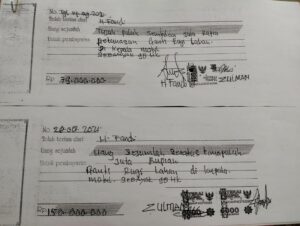 No. Tgl 04-09-2021
Telah terima dari H. Fandi
Uang sejumlah Tujuh Puluh Sembilan Juta Rupiah
Untuk pembayaran Ganti Rugi Lahan.
Di Kepala Mobil
Sebanyak 90 HK
Rp. 79-000-000
H Fandi
ZULMAN
No. 20-09-2021
Telah terima dari H. Fandi
Uang sejumlah Uang Sejumlah Seratus Limapuluh
Juta Rupiah
Untuk pembayaran Ganti Rugi Lahan di Kepala
Mobil. Sebanyak 90 HK
Rp. 150-000-000
ZULMAN